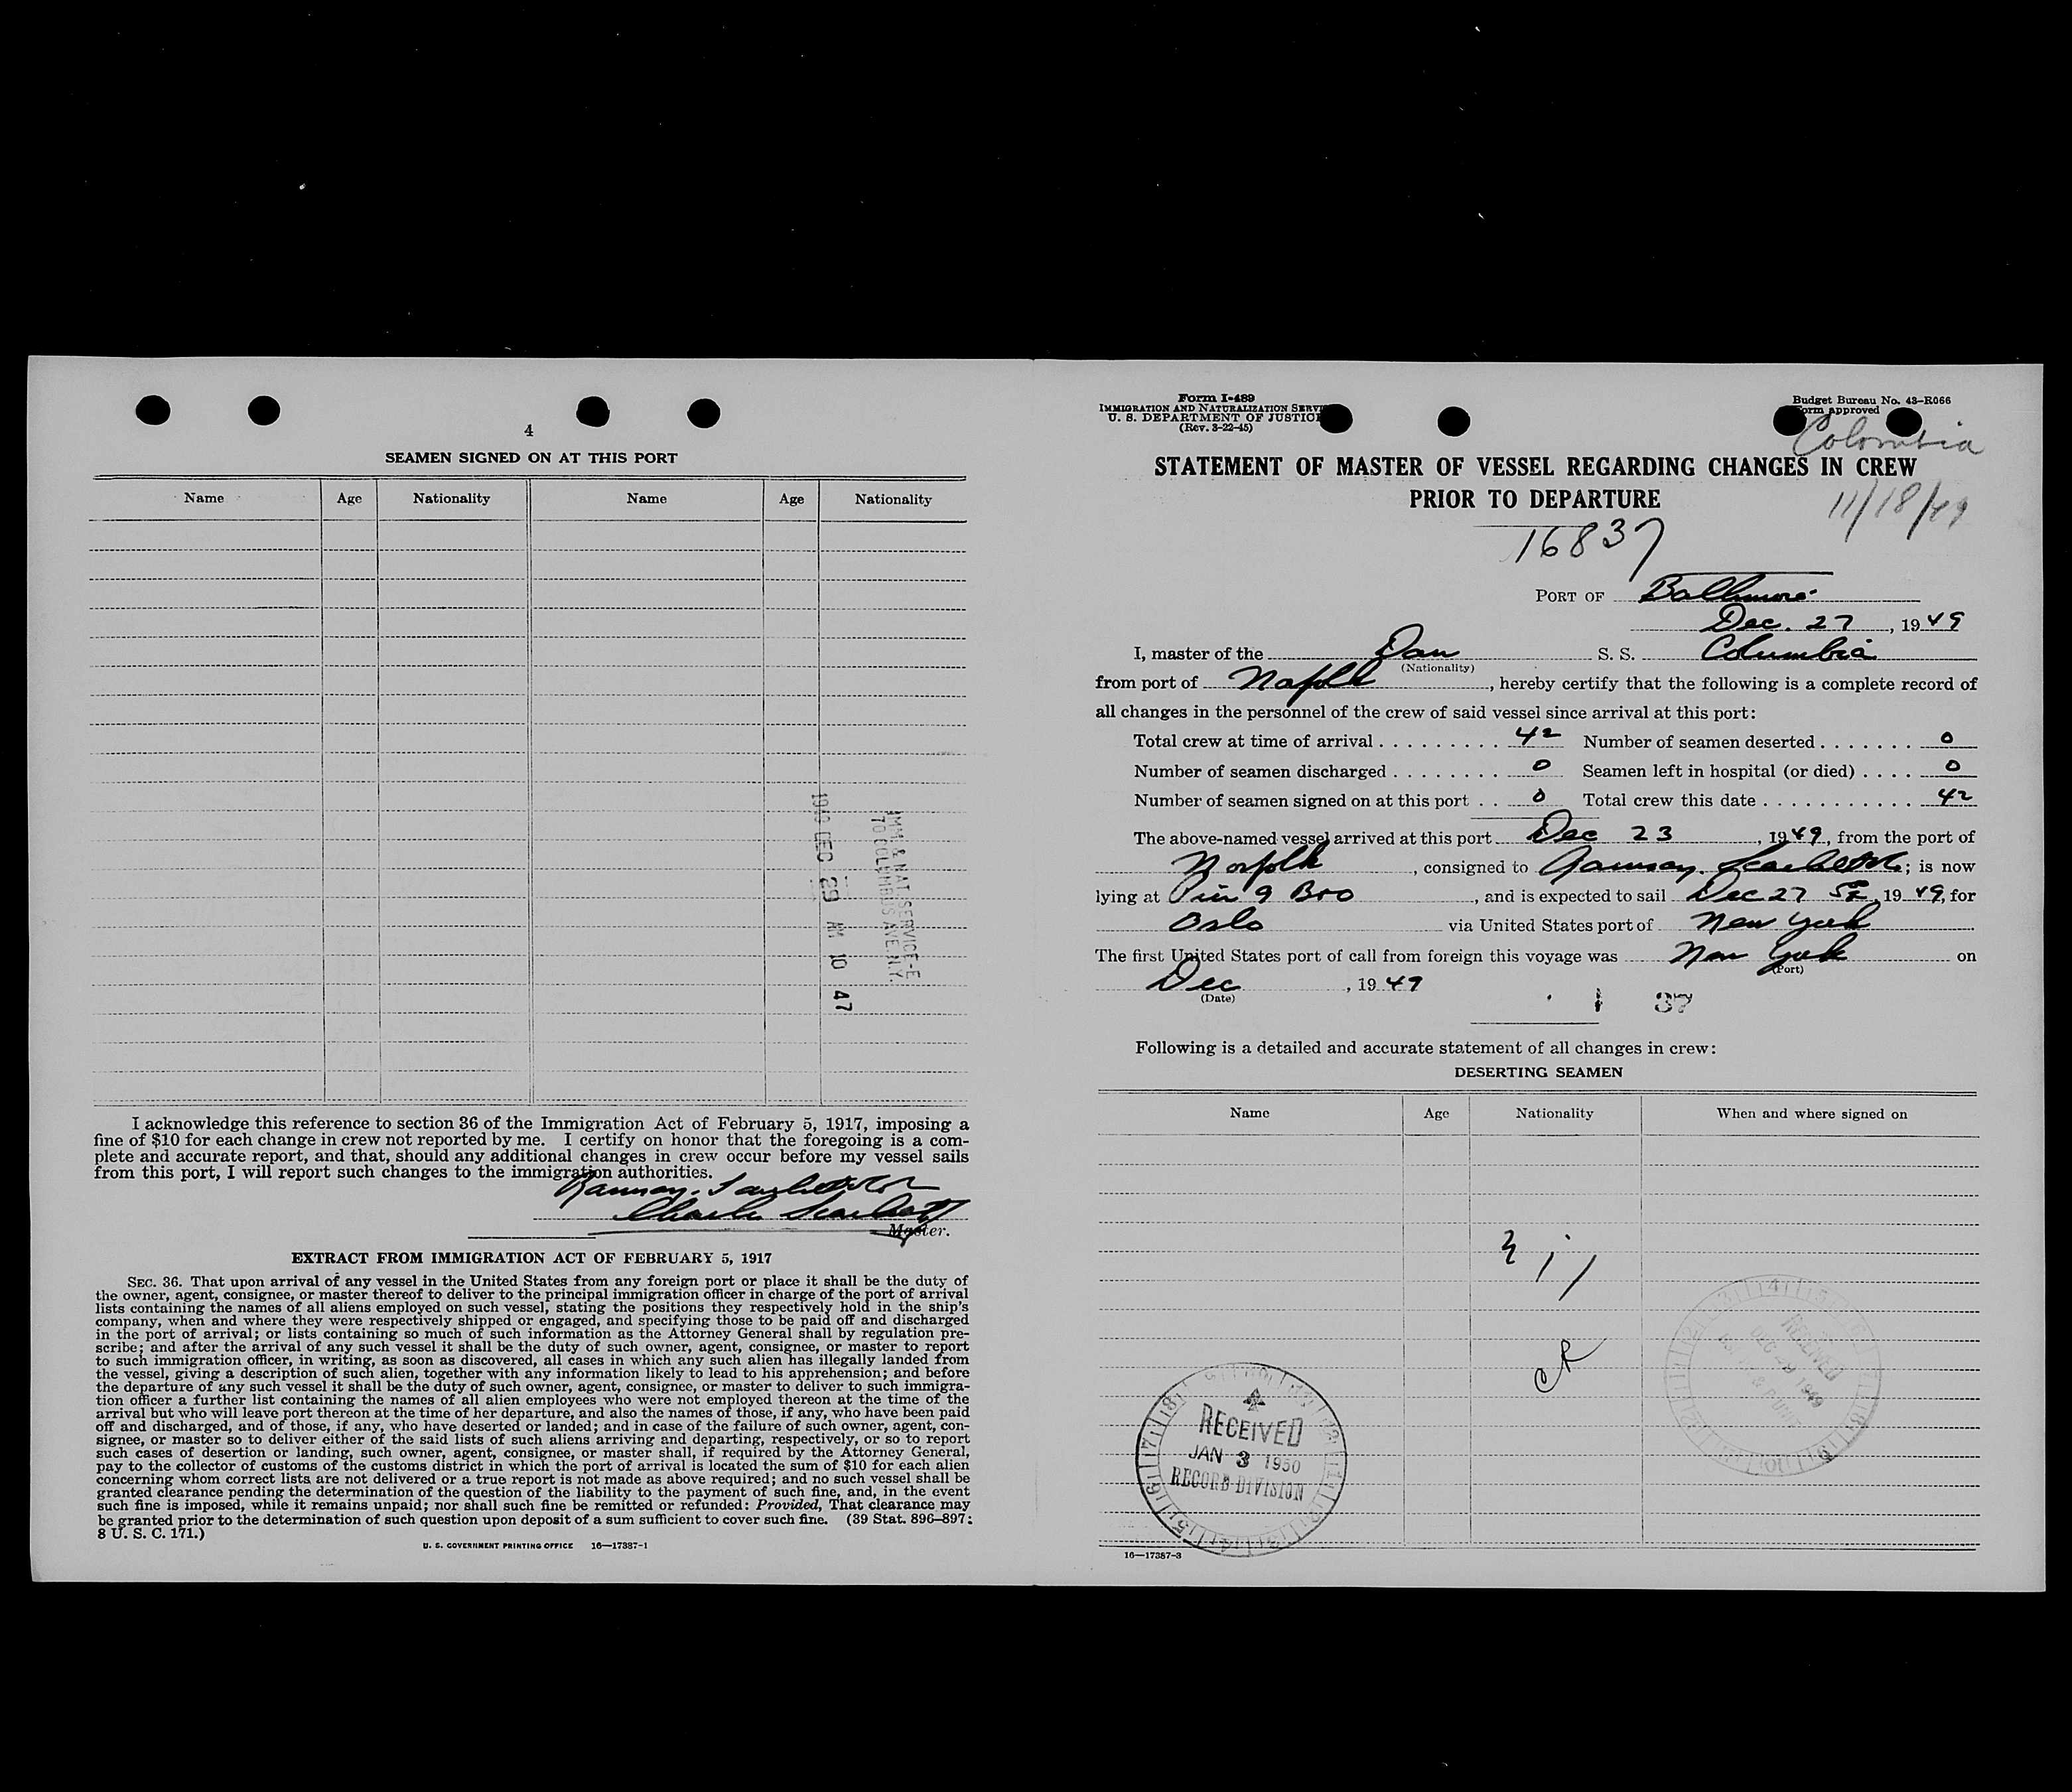 4
SEAMEN SIGNED ON AT THIS PORT
Name Age Nationality Name Age Nationality
IMM & NAT SERVICE-E.
70 COLUMBUS AVE. N.Y.
DEC 29 AM 10 47
I acknowledge this reference to section 36 of the Immigration Act of February 5, 1917, imposing a
fine of $10 for each change in crew not reported by me. I certify on honor that the foregoing is a com-
plete and accurate report, and that, should any additional changes in crew occur before my vessel sails
from this port, I will report such changes to the immigration authorities.
Master.
EXTRACT FROM IMMIGRATION ACT OF FEBRUARY 5, 1917
SEC. 36. That upon arrival of any vessel in the United States from any foreign port or place it shall be the duty of
the owner, agent, consignee, or master thereof to deliver to the principal immigration officer in charge of the port of arrival
lists containing the names of all aliens employed on such vessel, stating the positions they respectively hold in the ship's
company, when and where they were respectively shipped or engaged, and specifying those to be paid off and discharged
in the port of arrival; or lists containing so much of such information as the Attorney General shall by regulation pre-
scribe; and after the arrival of any such vessel it shall be the duty of such owner, agent, consignee, or master to report
to such immigration officer, in writing, as soon as discovered, all cases in which any such alien has illegally landed from
the vessel, giving a description of such alien, together with any information likely to lead to his apprehension; and before
the departure of any such vessel it shall be the duty of such owner, agent, consignee, or master to deliver to such immigra-
tion officer a further list containing the names of all alien employees who were not employed thereon at the time of the
arrival but who will leave port thereon at the time of her departure, and also the names of those, if any, who have been paid
off and discharged, and of those, if any, who have deserted or landed; and in case of the failure of such owner, agent, con-
signee, or master so to deliver either of the said lists of such aliens arriving and departing, respectively, or so to report
such cases of desertion or landing, such owner, agent, consignee, or master shall, if required by the Attorney General,
pay to the collector of customs of the customs district in which the port of arrival is located the sum of $10 for each alien
concerning whom correct lists are not delivered or a true report is not made as above required; and no such vessel shall be
granted clearance pending the determination of the question of the liability to the payment of such fine, and, in the event
such fine is imposed, while it remains unpaid; nor shall such fine be remitted or refunded: Provided, That clearance may
be granted prior to the determination of such question upon deposit of a sum sufficient to cover such fine. (39 Stat. 896–897;
8 U. S. C. 171.)
U. S. GOVERNMENT PRINTING OFFICE 16—17387-1
Form I-489
IMMIGRATION AND NATURALIZATION SERVI
U. S. DEPARTMENT OF JUSTIC
(Rev. 3-22-45)
Budget Bureau No. 43–R066
Form approved
Colombia
STATEMENT OF MASTER OF VESSEL REGARDING CHANGES IN CREW
PRIOR TO DEPARTURE
11/18/49
16837
PORT OF Baltimore
Dec. 27, 1949
I, master of the Dan S. S. Columbia
(Nationality)
from port of Nofolk, hereby certify that the following is a complete record of
all changes in the personnel of the crew of said vessel since arrival at this port:
Total crew at time of arrival 42 Number of seamen deserted 0
Number of seamen discharged 0 Seamen left in hospital (or died) 0
Number of seamen signed on at this port 0 Total crew this date 42
The above-named vessel arrived at this port Dec 23, 1949, from the port of
Norfolk, consigned to Ramsay. Scarlett Co; is now
lying at Pier 9 B&O, and is expected to sail Dec 27, 1949, for
Oslo via United States port of New York
The first United States port of call from foreign this voyage was New York on
(Port)
Dec, 1949
(Date)
37
Following is a detailed and accurate statement of all changes in crew:
DESERTING SEAMEN
Name Age Nationality When and where signed on
RECEIVED
DEC 29 1949
RECEIVED
JAN 3 1950
RECORD DIVISION
16—17387-3